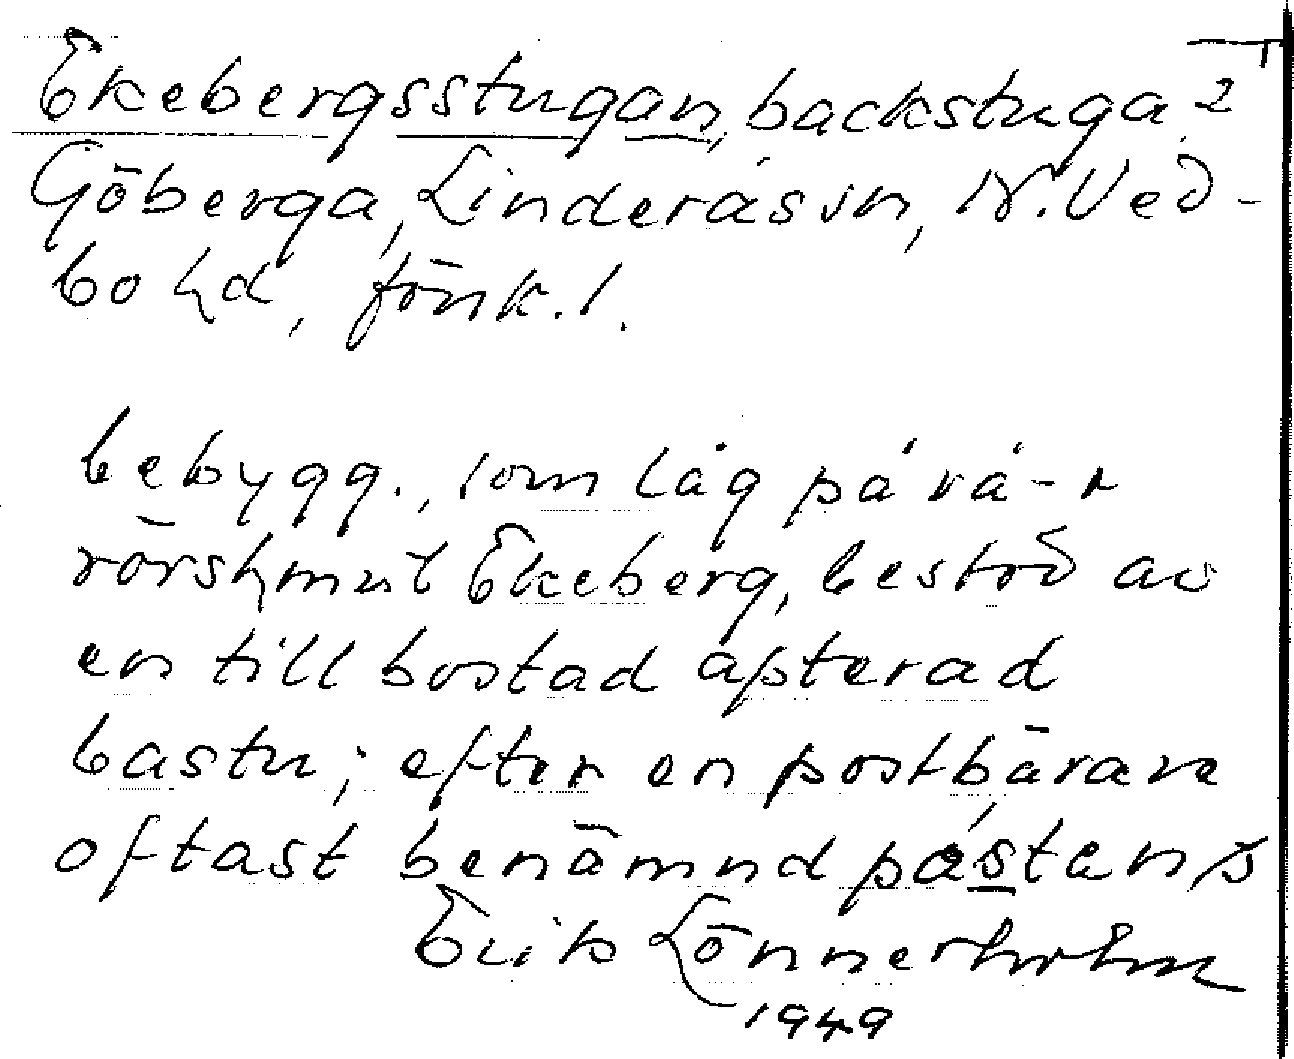 Ekebergsstugan, backstuga?
Göberga, Linderås sn, N. Ved-
bo hd, Jönk. l.
bebygg., som låg på rå-r
rörshmnt Ekeberg, bestod av
en till bostad apterad
bastu; efter en postbärare
oftast benämnd påstens
Erik Lönnerholm
1949